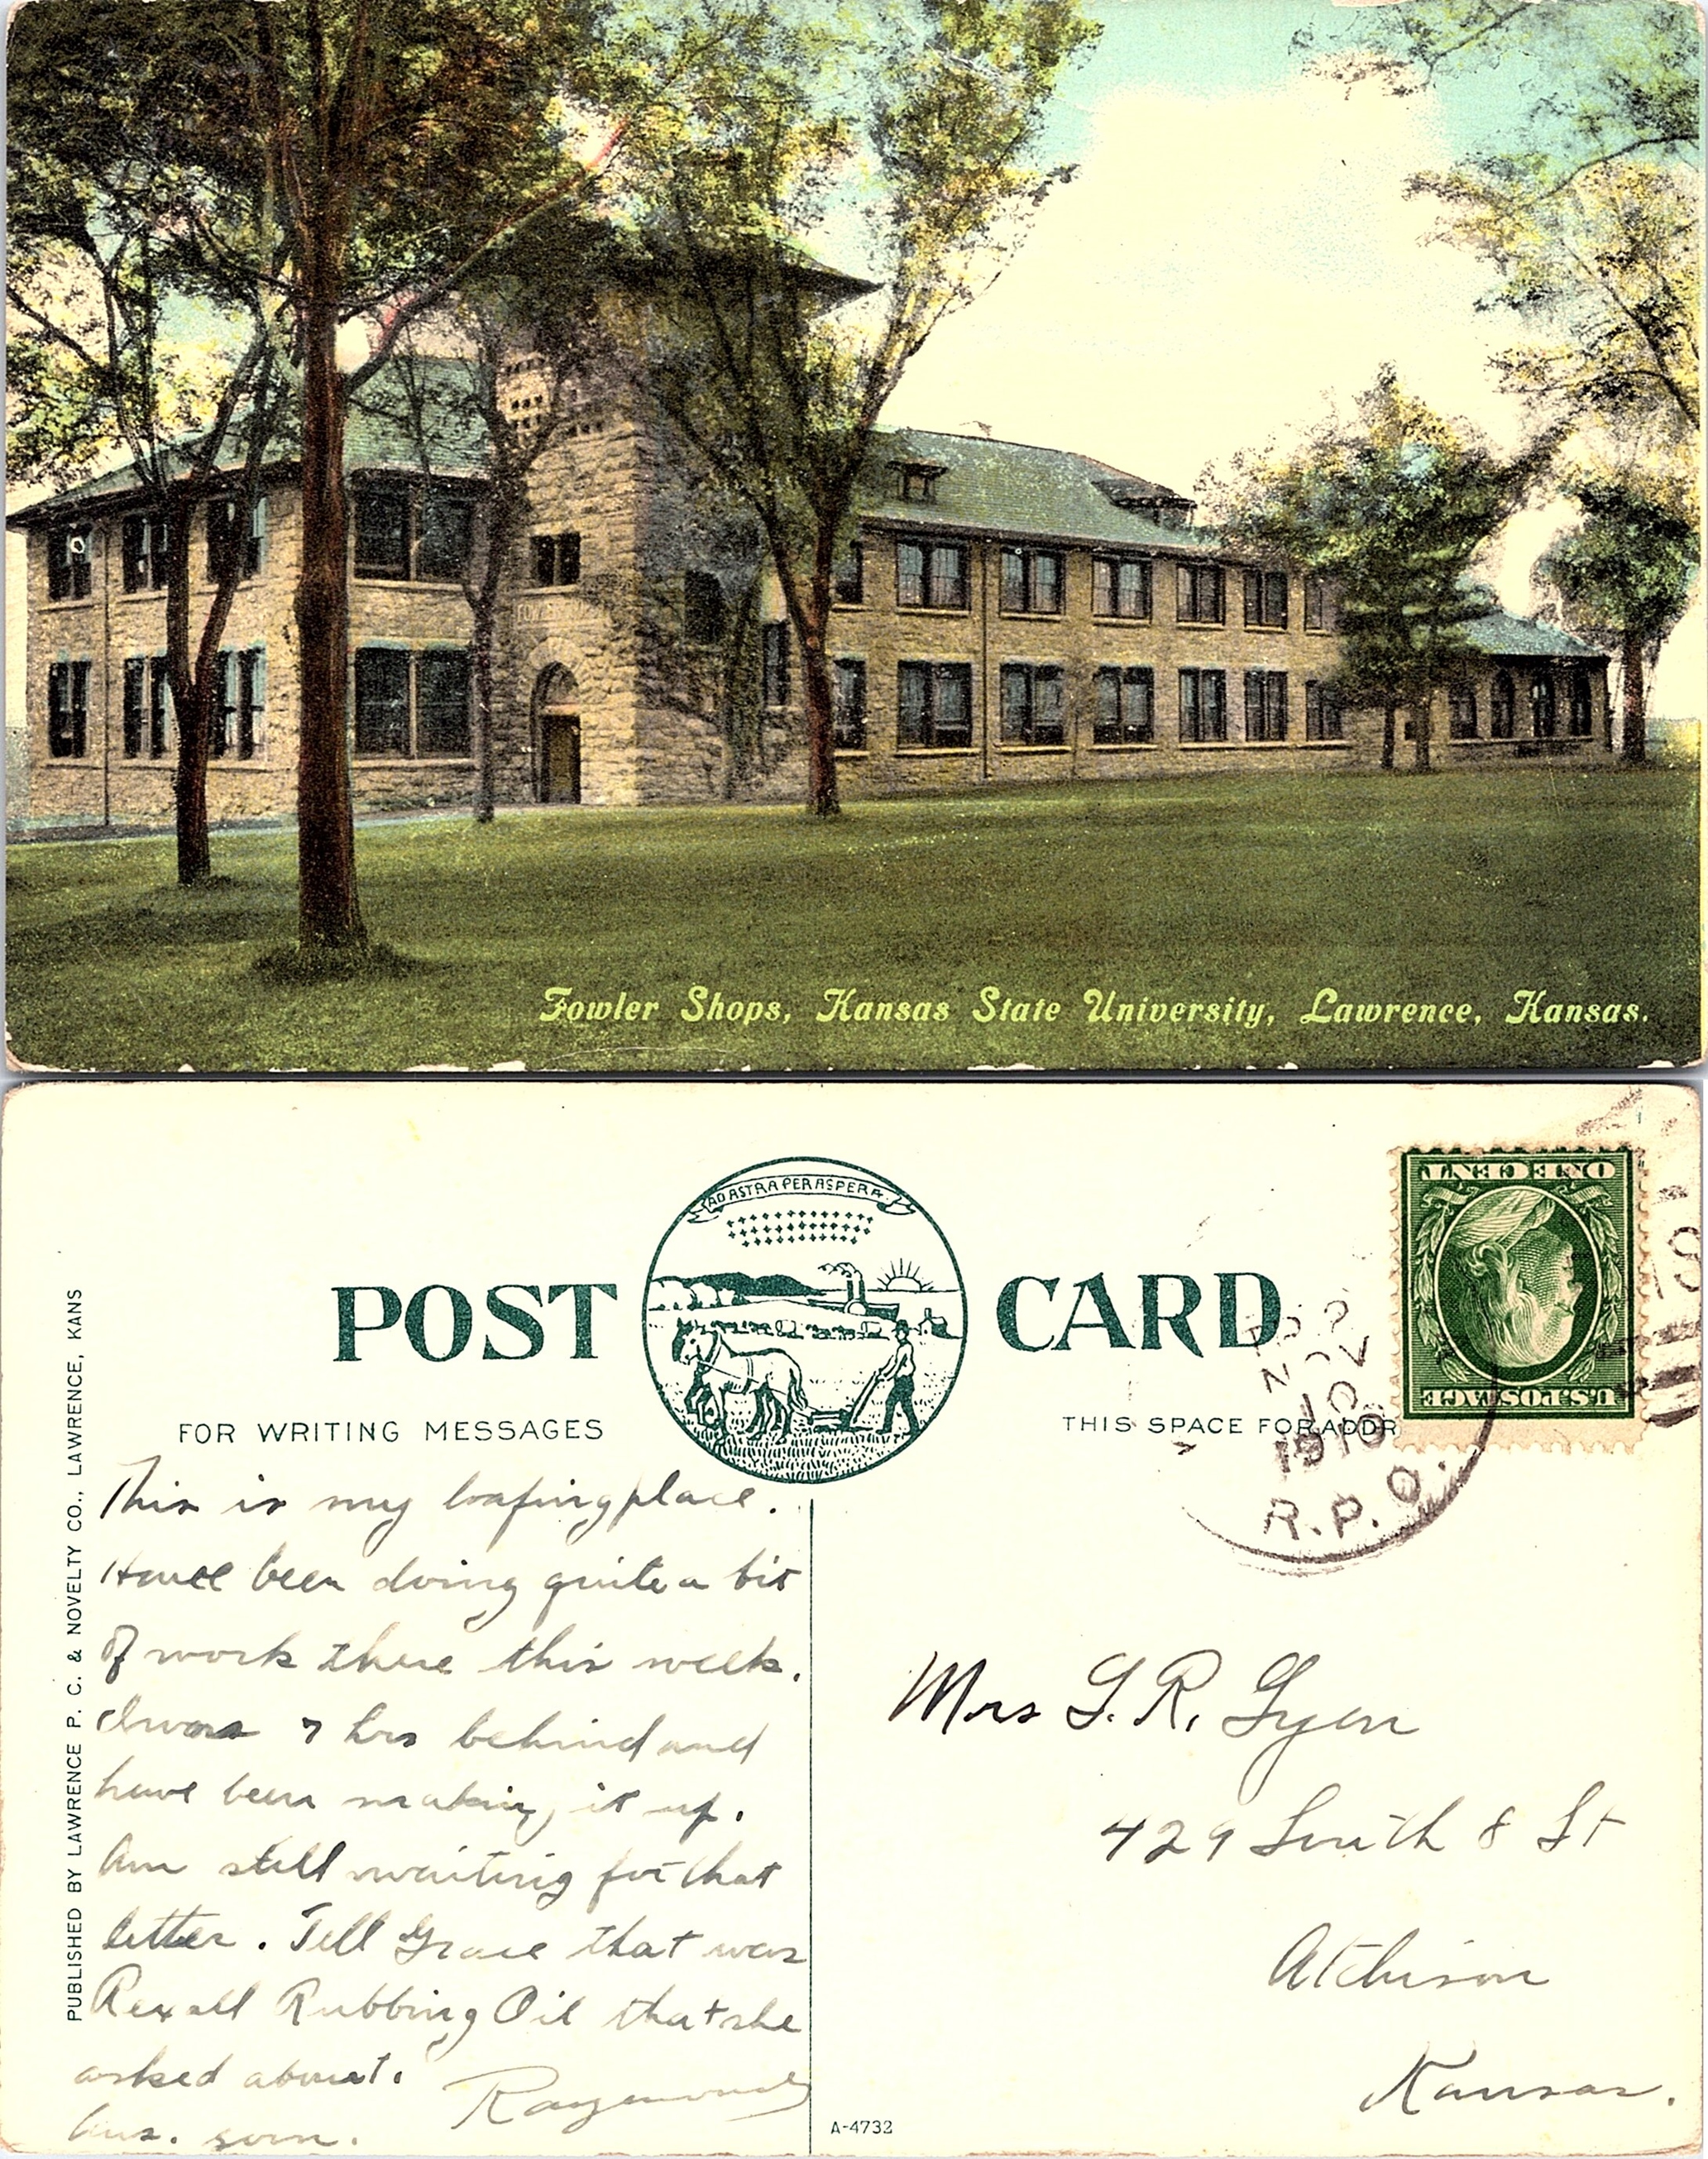 FOWLER SHOPS
Fowler Shops, Kansas State University, Lawrence, Kansas.
PUBLISHED BY LAWRENCE P. C. & NOVELTY CO., LAWRENCE, KANS
POST CARD
AD ASTRA PER ASPERA
FOR WRITING MESSAGES
THIS SPACE FOR ADDR
ONE CENT
U.S. POSTAGE
NOV
10
1910
R.P.O.
This is my loafing place.
Have been doing quite a bit
of work there this week.
I was 7 hrs behind and
have been making it up.
Am still waiting for that
letter. Tell Grace that was
Rexall Rubbing Oil that she
asked about.
Ans. soon. Raymond
Mrs G. R. Gyer
429 South 8 St
Atchison
Kansas.
A-4732